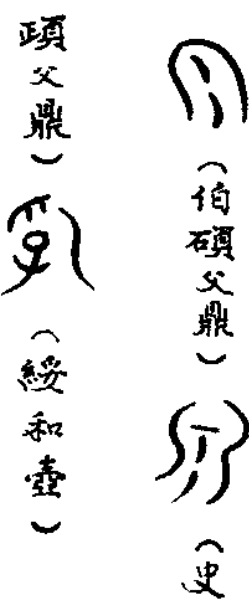 (伯碩父鼎) (史
父鼎) (綏和壺)